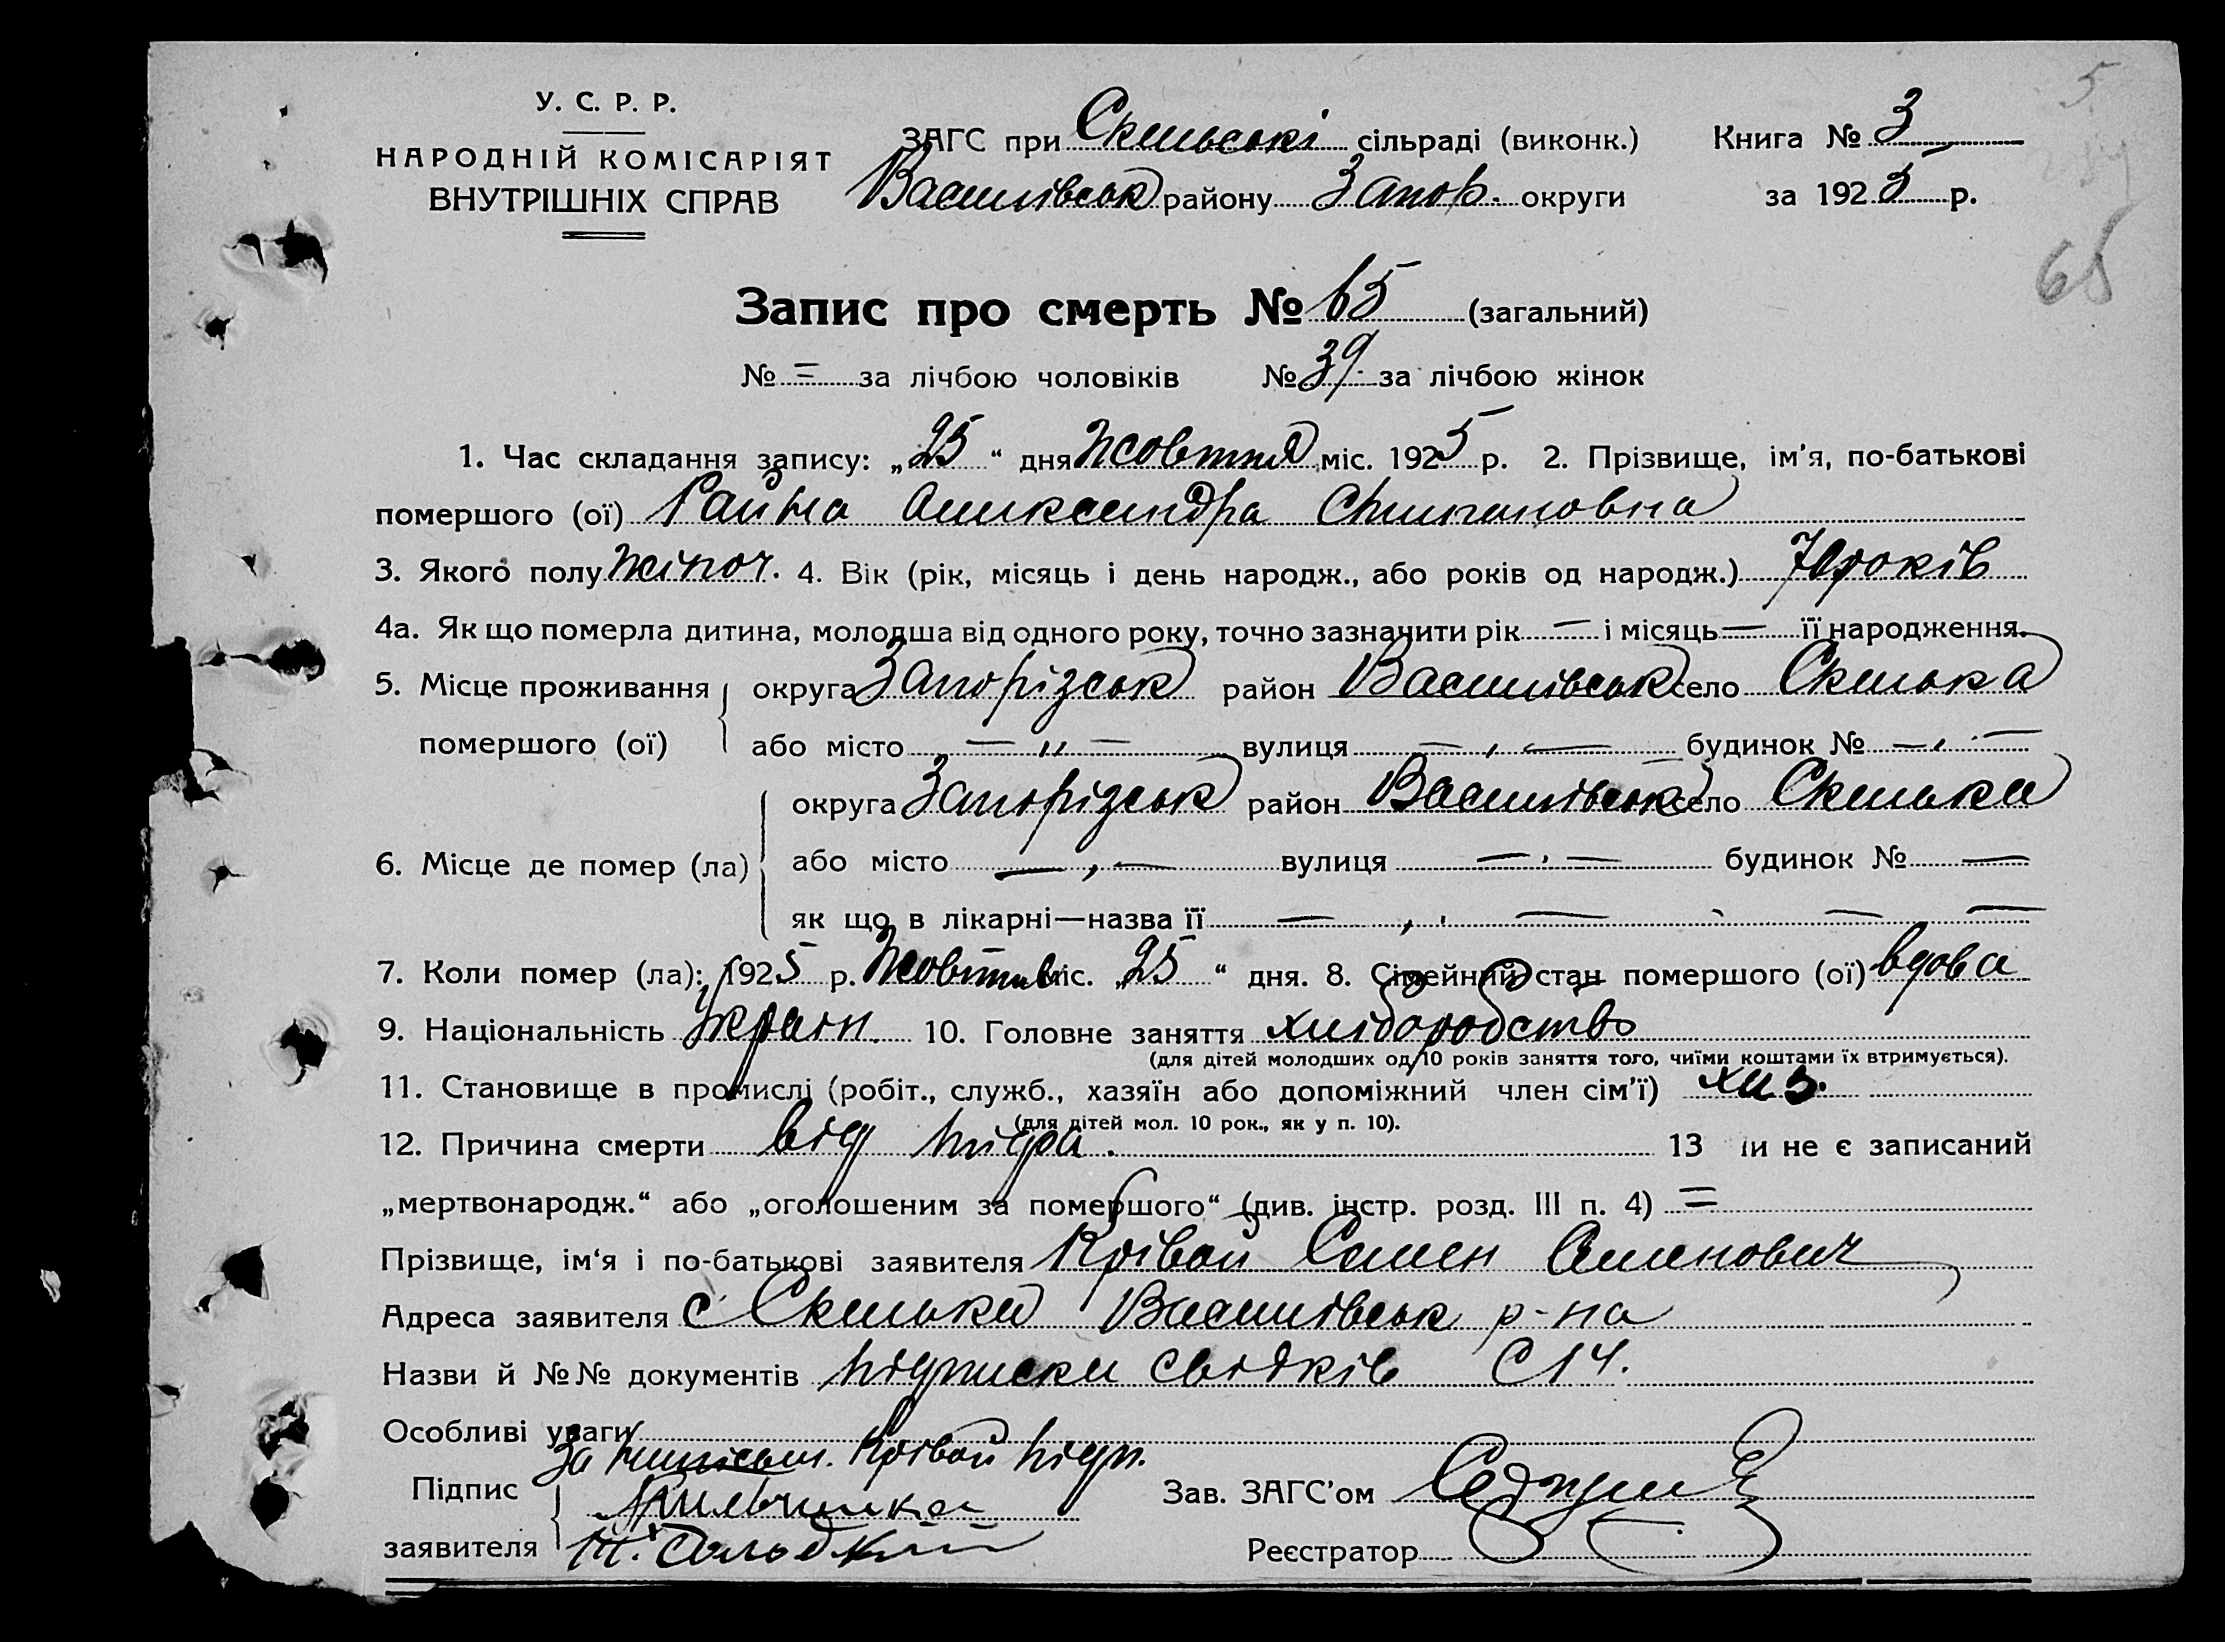 У. С. Р. Р.
НАРОДНІЙ КОМІСАРІЯТ
ВНУТРІШНІХ СПРАВ
ЗАГС при Скельські сільраді (виконк.) Книга № 3
Василівськ району Запор. округи за 1925 р.
5
65
Запис про смерть № 65 (загальний)
№ = за лічбою чоловіків № 39 за лічбою жінок
1. Час складання запису: „25“ дня Жовтня міс. 1925 р. 2. Прізвище, ім’я, по-батькові
помершого (ої) Александра
3. Якого полу жіноч. 4. Вік (рік, місяць і день народж., або років од народж.) 70 років
4а. Як що померла дитина, молодша від одного року, точно зазначити рік — і місяць — її народження.
5. Місце проживання округа Запорізськ район Василівськ село Скелька
помершого (ої) або місто — „ — вулиця — , — будинок № — , —
округа Запорізськ район Василівськ село Скельки
6. Місце де помер (ла) або місто — , — вулиця — , — будинок № —
як що в лікарні—назва її — , — — —
7. Коли помер (ла): 1925 р. Жовтня міс. „25“ дня. 8. Сімейний стан помершого (ої) вдова
9. Національність Україн. 10. Головне заняття хліборобство
(для дітей молодших од 10 років заняття того, чиїми коштами їх втримується).
11. Становище в промислі (робіт., служб., хазяїн або допоміжний член сім’ї)
(для дітей мол. 10 рок., як у п. 10).
12. Причина смерти від 13 и не є записаний
„мертвонародж.“ або „оголошеним за помершого“ (див. інстр. розд. III п. 4) =
Прізвище, ім‘я і по-батькові заявителя Крівой Семен Семенович
Адреса заявителя с Скельки Василівськ р-на
Назви й №№ документів підписки свідків
Особливі уваги
За Крівой підп.
Підпис
заявителя
Зав. ЗАГС’ом
Реєстратор